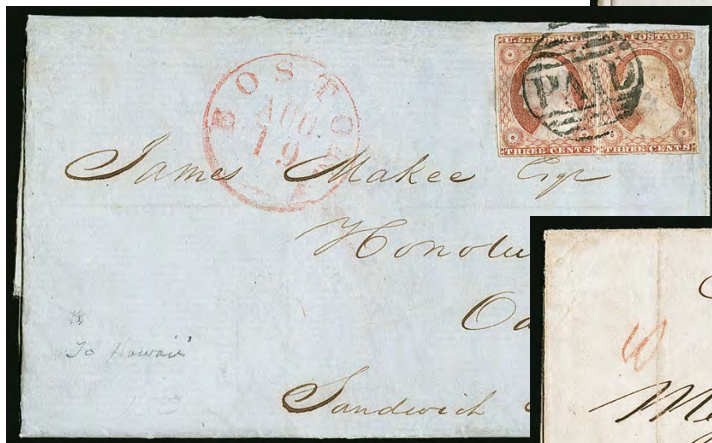 U.S. POSTAGE POSTAGE
PAID
THREE CENTS THREE CENTS
BOSTON
AUG.
19
James Makee Esqr
Honolu
Oa
Sandwich
To Hawaii
10
Me